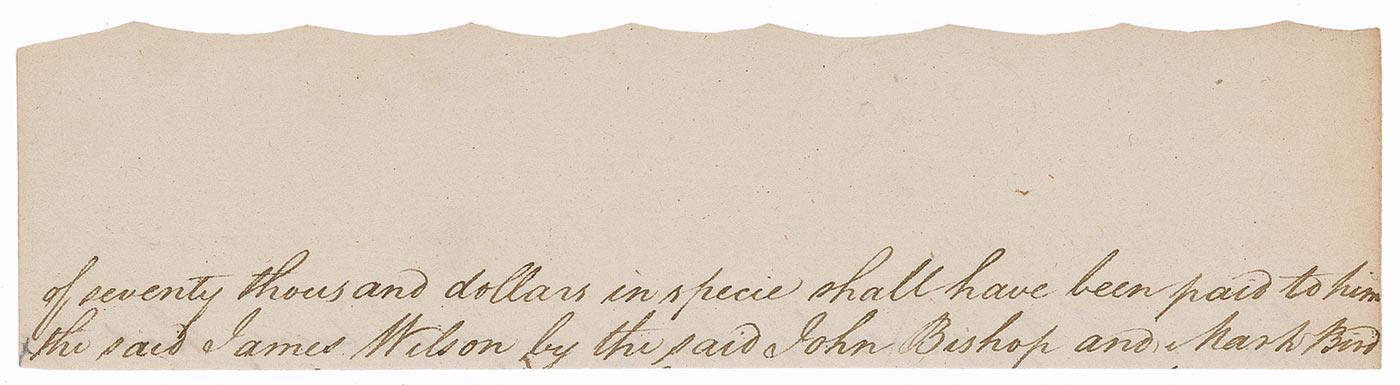 of seventy thousand dollars in specie shall have been paid to him
the said James Wilson by the said John Bishop and Mark Bird